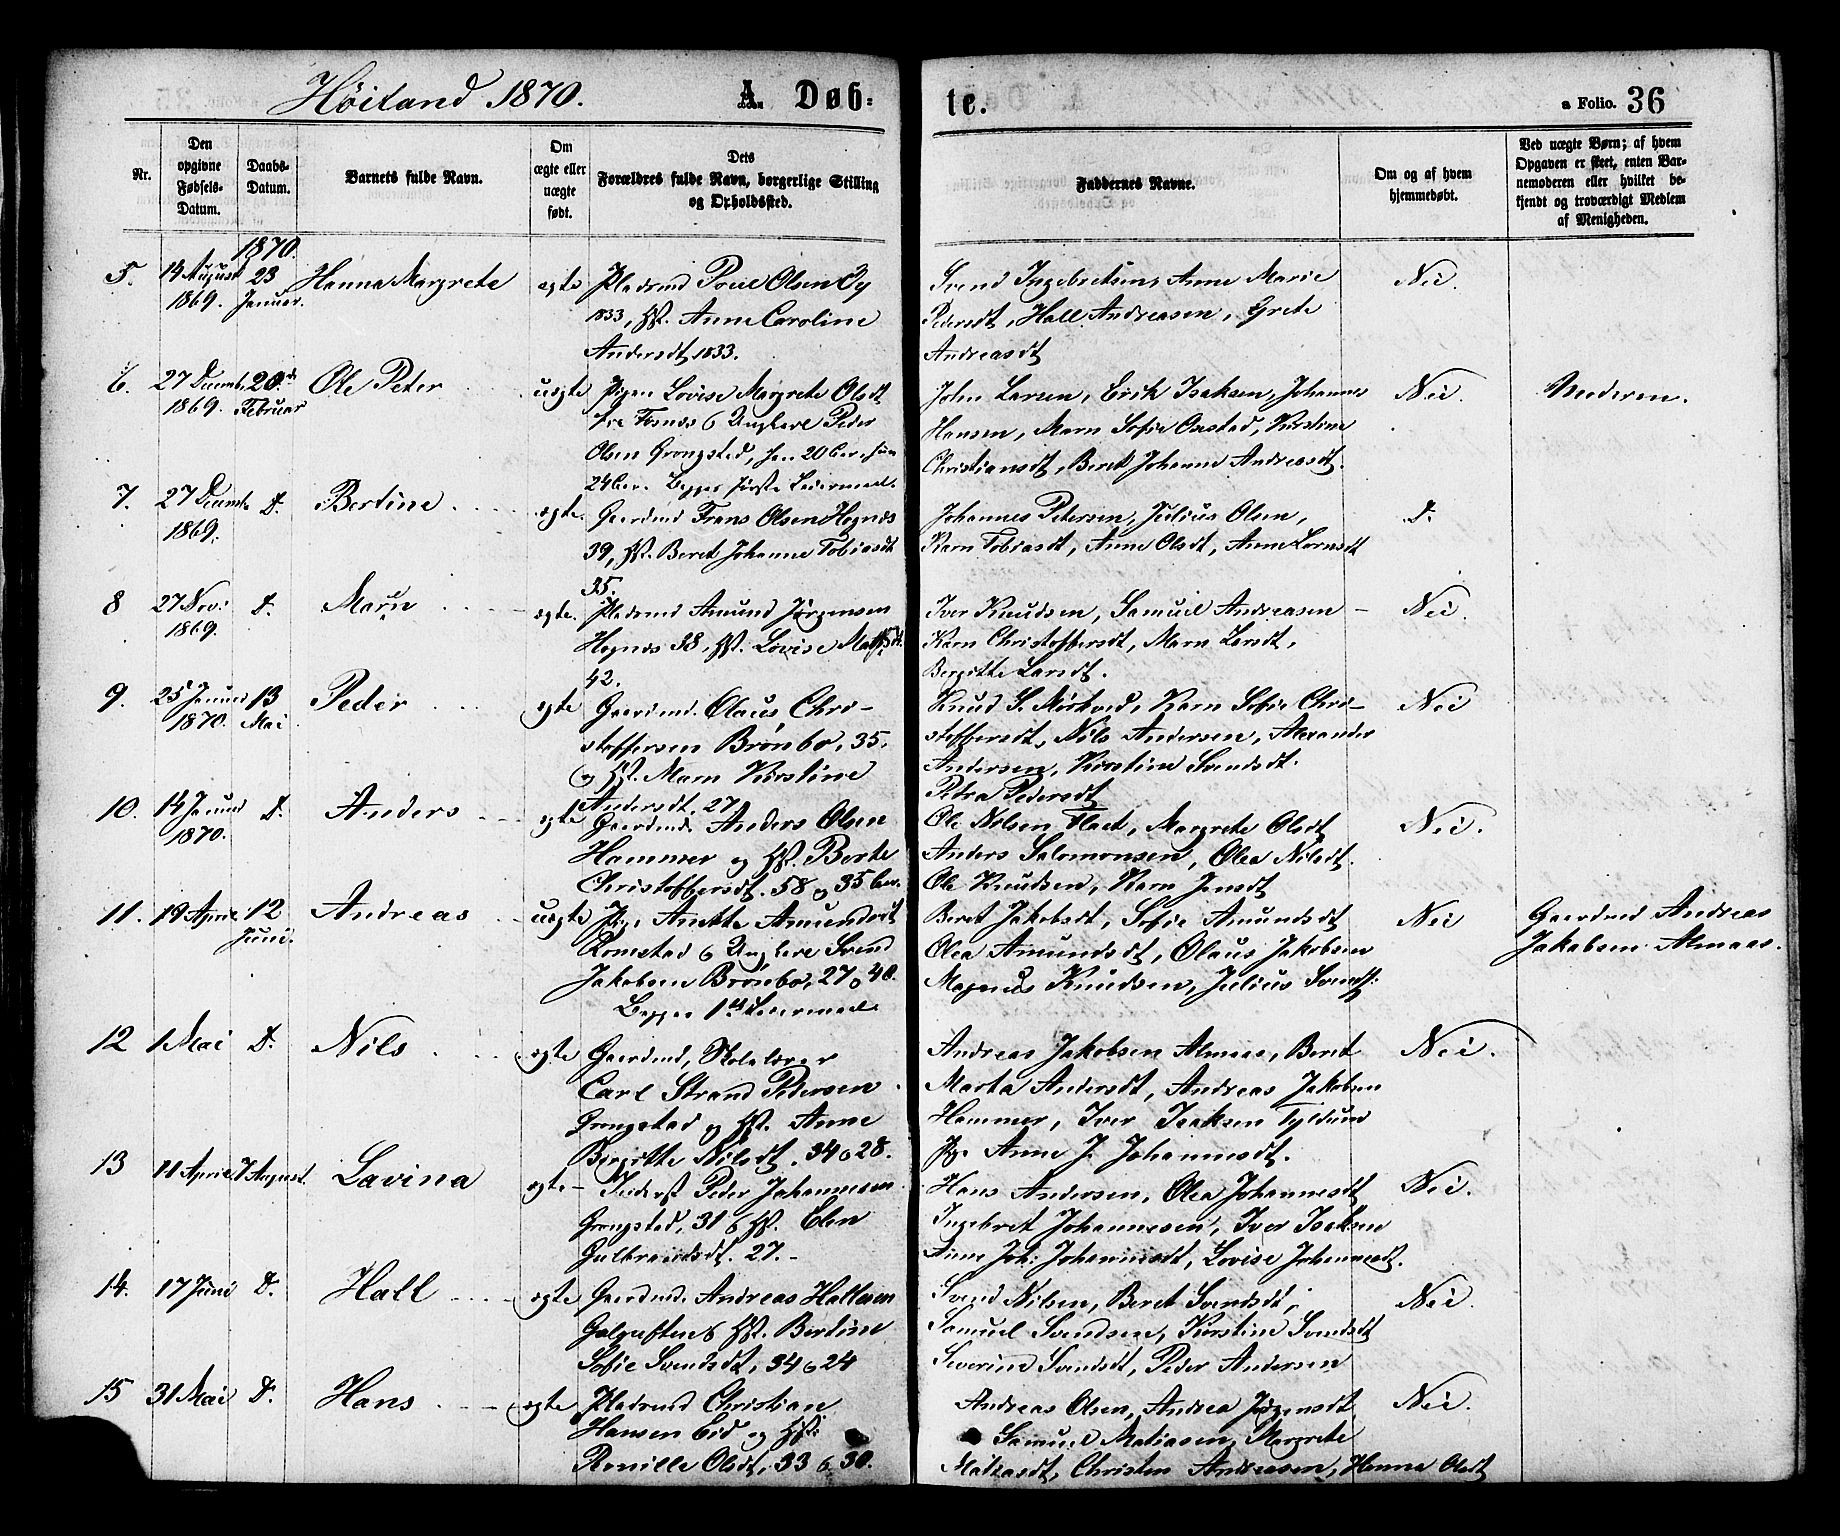 Høiland 1870.
A. Døb-
te.
a Folio. 36
Nr.
Den opgivne Fødsels-Datum.
Daabs-Datum.
Barnets fulde Navn.
Om ægte eller uægte født.
Dets Forældres fulde Navn, borgerlige Stilling og Opholdssted.
Faddernes Navne.
Om og af hvem hjemmedøbt.
Ved uægte Børn; af hvem Opgaven er skeet, enten Barnemoderen eller hvilket bekjendt og troværdigt Medlem af Menigheden.
1870.
5. 14 August 1869. 23 Januar. Hanna Margrete ægte Pladsmd Povel Olsen Øy
1833, Hst. Anne Caroline
Andersdt 1833.
Svend Ingebretsen, Anne Marie
Pedersdt, Hall Andreasen, Grete
Andreasdt
Nei.
6. 27 Decemb. 1869. 20de Februar Ole Peter uægte Pigen Lovise Margrete Olsdt
fra Fosnæs o Ungkarl Peder
Olsen Grongsted, han 20 aar, hun
24 aar. Begges første Leiermaal.
John Larsen, Erik Isaksen, Johannes
Hansen, Marn Sofie Oustad, Kirstine
Christiansdt, Beret Johanna Andreasdt.
Nei. Moderen.
7. 27 Decemb 1869. D. Bertine ægte. Gaardmd Frans Olsen Høgnæs
39, Hst. Beret Johanne Tobiasdt
35.
Johannes Petersen, Julius Olsen,
Karn Tobiasdt, Anne Olsdt, Anne Larsdt
D.
8 27 Nov: 1869. D. Marn ægte. Pladsmd Amund Jørgensen
Høgnæs 38, Hst. Lovise Mathisdt.
42.
Iver Knudsen, Samuel Andreasen
Karn Christoffersdt, Marn Larsdt,
Bergitte Larsdt.
Nei.
9. 25 Januar 1870. 13 Mai Peder ægte Gaardmd. Olaus Chri-
stoffersen Brønbo, 35.
og Hst. Marn Kirstine
Andersdt. 27
Knud S. Mörkved, Karn Sofie Chri-
stoffersdt, Nils Andersen, Alexander
Andersen, Kirstine Svendsdt.
Petra Pedersdt
Nei
10. 14 Januar 1870. D. Anders ægte Gaardmd. Anders Olsen
Hammer og Hst. Berte
Christoffersdt. 58 og 35 aar.
Ole Nilsen Flaat, Margrete Olsdt
Anders Salomonsen, Olea Nilsdt.
Ole Knudsen, Karn Jensdt
Nei.
11. 19 April 12 Juni. Andreas uægte Pige Anette Amundsdt
Romstad o Ungkarl Svend
Jakobsen Brønbo, 27 o 40.
Begges 1ste Leiermaal.
Beret Jakobsdt, Sofie Amundsdt
Olea Amundsdt, Olaus Jakobsen
Magnus Knudsen, Julius Svends:
Nei Gaardmd Andreas
Jakobsen Almaas.
12 1 Mai D. Nils ægte Gaardmd, Skolelærer
Carl Strand Pedersen
Grongstad og Hst. Anne
Bergitte Nilsdt. 34 o 28.
Andreas Jakobsen Almaas, Beret
Marta Andersdt, Andreas Jakobsen
Hammer, Iver Isaksen Tyldum
Pge Anne J. Johannesdt.
Nei.
13 11 April 7 August. Lavina ægte Inderst Peder Johannesen
Grongsted, 31 o Hst. Elen
Gulbrandsdt. 27.
Hans Andersen, Olea Johannesdt
Ingebret Johannesen, Iver Isaksen
Anne Joh: Johannesdt, Lovise Johannesdt.
Nei.
14. 17 Juni D. Hall ægte Gaardmd. Andreas Hallesen
Galguften o Hst. Bertine
Sofie Svendsdt, 34 o 24
Svend Nilsen, Beret Svendsdt,
Samuel Svendsen, Kirstine Svendsdt
Severine Svendsdt, Peder Andersen
Nei.
15 31 Mai D. Hans ægte Pladsmd Christian
Hansen Eid og Hst:
Pernille Olsdt, 33 o 30.
Andreas Olsen, Andrea Jørgensdt
Samuel Matiasen, Margrete
Matiasdt, Christen Andreasen, Hanna Olsdt
Nei.